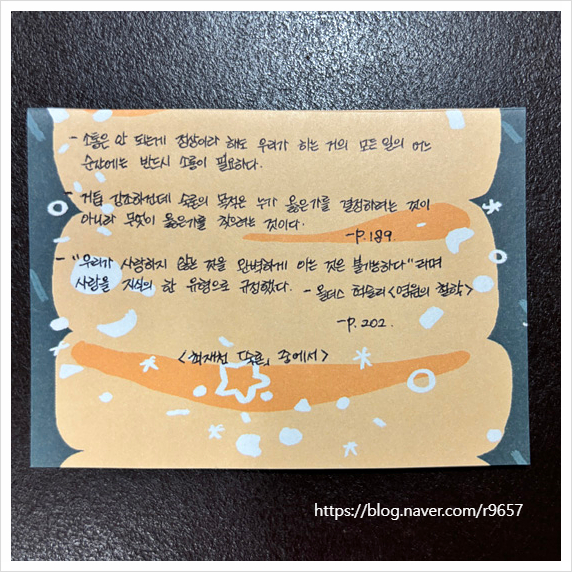 - 소통은 안 되는게 정상이라 해도 우리가 하는 거의 모든 일의 어느
순간에는 반드시 소통이 필요하다.
- 거듭 강조하건대 숙론의 목적은 누가 옳은가를 결정하려는 것이
아니라 무엇이 옳은가를 찾으려는 것이다.
-p.189.
- "우리가 사랑하지 않는 것을 완벽하게 아는 것은 불가능하다"라며
사랑을 지식의 한 유형으로 규정했다. - 올더스 헉슬리<영원의 철학>
-p.202.
<최재천 「숙론」 중에서>
https://blog.naver.com/r9657